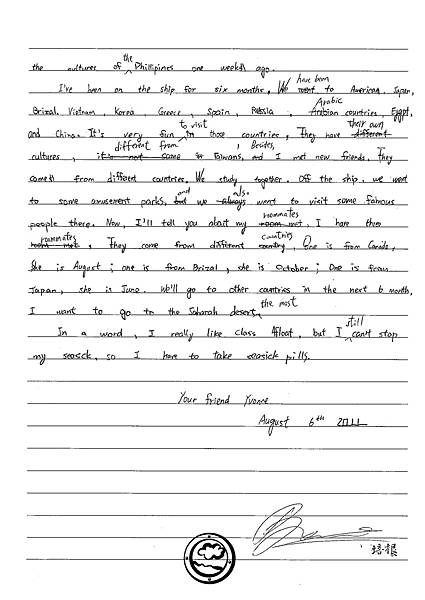 the cultures of the Phillipines one weekdl ago.
I've been on the ship for six months, We have been went to American, Japan,
Brizal, Vietnam, Korea, Greece, Spain, Russia, Arabic Arabian countries, Egypt,
and China. It's very fun to visit in those countries, They have their own different
cultures, it's not same different from as Taiwans, Besides, and I met new friends. They
camedl from different countries, We study together. Off the ship, we went
to some amusement parks, and but we also always went to visit some famous
people there. Now, I'll tell you about my roommates room met, I have three
roommates room met, They come from different countris country, One is from Canada,
she is August; one is from Brizal, she is October; One is from
Japan, she is June. We'll go to other countries in the next 6 month,
I want to go to the Saharah desert the most
In a word, I really like Class Afloat, but I still can't stop
my seasick, so I have to take seasick pills.
Your friend Yvonne
August 6th 2011